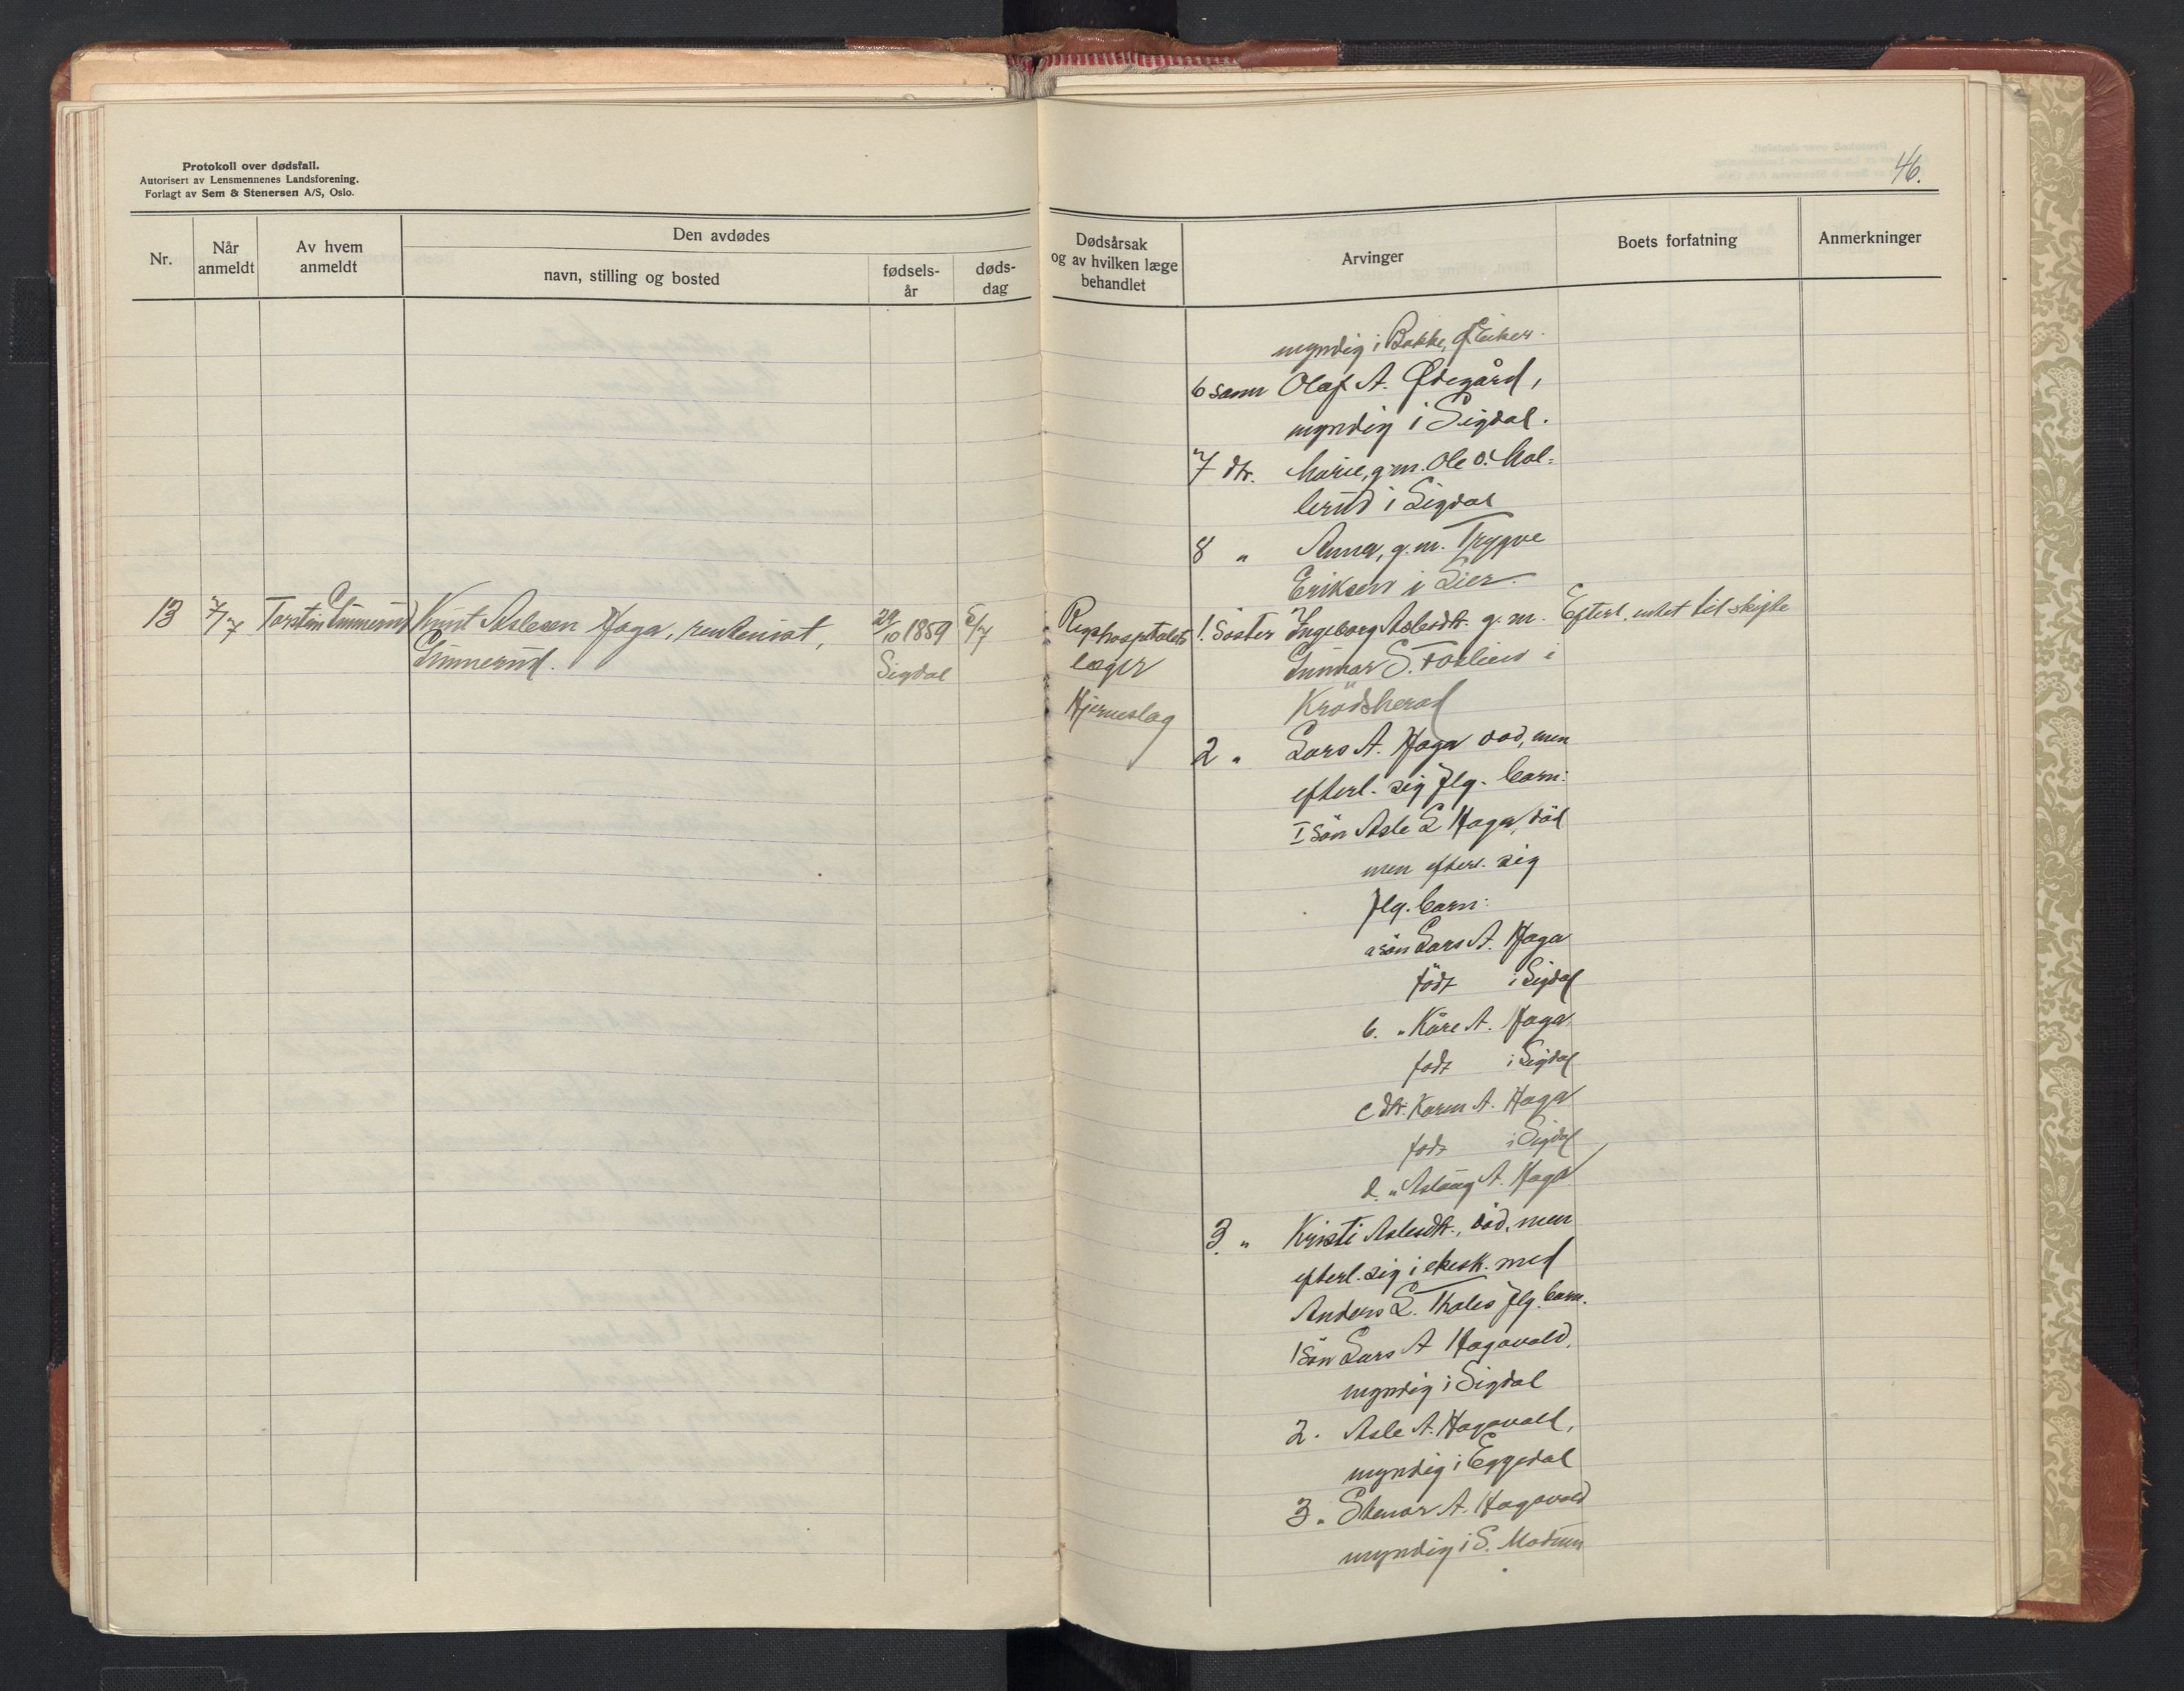 Protokoll over dødsfall.
Autorisert av Lensmennenes Landsforening.
Forlagt av Sem & Stenersen A/S, Oslo.
46.
Nr.
Når anmeldt
Av hvem anmeldt
Den avdødes
navn, stilling og bosted
fødsels-år
døds-dag
Dødsårsak og av hvilken læge behandlet
Arvinger
Boets forfatning
Anmerkninger
myndig i Bakke, Ø Eiker.
6 sønn Olaf A. Ødegård,
myndig i Sigdal.
7 dtr. Marie, g.m. Ole O. Mol=
lerud i Sigdal
8 " Anna, g.m. Trygve
Eriksen i Lier.
13 7/7 Torstein Gunnerud Knut Aslesen Haga, rentenist, 29/10 1859 5/7
Gunnerud. Sigdal
Rigshospitalets
læger
Hjerneslag
1. Søster Ingeborg Aslesdtr. g.m. Efterl. intet til skifte
Gunnar S. i
Krødsherad
2 " Lars A. Haga død, men
efterl. sig flg. barn:
I søn Asle L Haga, død
men efterl. sig
flg. barn:
a søn Lars A. Haga
født i Sigdal
b. " Kåre A. Haga
født i Sigdal
c dtr. Karen A. Haga
født i Sigdal
d. " Aslaug A. Haga
3. " Kristi Aslesdtr., død, men
efterl. sig i ektesk. med
Anders L. flg. barn.
1 søn Lars A Hagavald,
myndig i Sigdal
2. Asle A. Hagavald,
myndig i Eggedal
3. " Stenar A. Hagavald
myndig i S. Modum